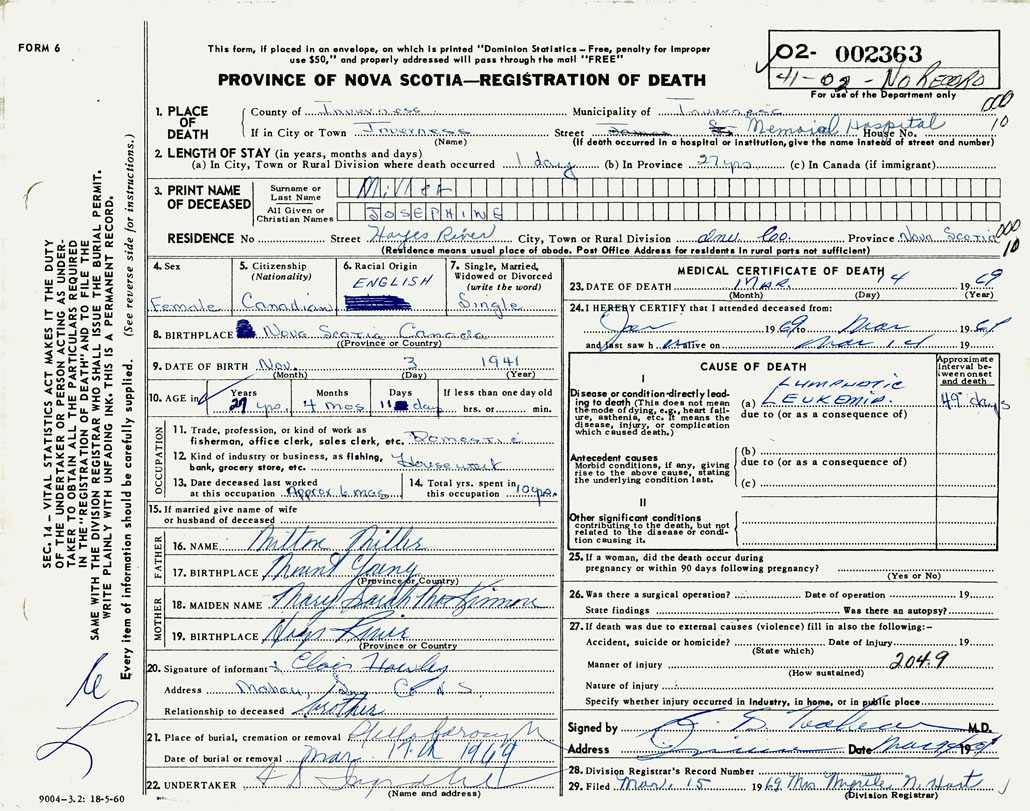 FORM 6
This form, if placed in an envelope, on which is printed "Dominion Statistics – Free, penalty for improper
use $50," and properly addressed will pass through the mail "FREE"
PROVINCE OF NOVA SCOTIA—REGISTRATION OF DEATH
02- 002363
41-02 - No Record
For use of the Department only
SEC. 14 – VITAL STATISTICS ACT MAKES IT THE DUTY
OF THE UNDERTAKER OR PERSON ACTING AS UNDER-
TAKER TO OBTAIN ALL THE PARTICULARS REQUIRED
IN THE "REGISTRATION OF DEATH" AND TO FILE THE
SAME WITH THE DIVISION REGISTRAR WHO SHALL ISSUE THE BURIAL PERMIT.
WRITE PLAINLY WITH UNFADING INK. THIS IS A PERMANENT RECORD.
Every item of information should be carefully supplied. (See reverse side for instructions.)
1. PLACE OF DEATH
County of Inverness Municipality of Inverness
000
10
If in City or Town Inverness Street Memorial Hospital House No.
(Name) (If death occurred in a hospital or institution, give the name instead of street and number)
2. LENGTH OF STAY (in years, months and days)
(a) In City, Town or Rural Division where death occurred 1 day (b) In Province 27 yrs. (c) In Canada (if immigrant)
3. PRINT NAME OF DECEASED
Surname or Last Name Miller
All Given or Christian Names JOSEPHINE
RESIDENCE No Street Hayes River City, Town or Rural Division Inv. Co. Province Nova Scotia
000
10
(Residence means usual place of abode. Post Office Address for residents in rural parts not sufficient)
4. Sex Female
5. Citizenship (Nationality) Canadian
6. Racial Origin ENGLISH
7. Single, Married, Widowed or Divorced (write the word) Single
8. BIRTHPLACE Nova Scotia Canada
(Province or Country)
9. DATE OF BIRTH Nov. 3 1941
(Month) (Day) (Year)
10. AGE in Years Months Days If less than one day old
27 yrs. 4 mos 11 days hrs. or min.
OCCUPATION
11. Trade, profession, or kind of work as
fisherman, office clerk, sales clerk, etc. Domestic
12. Kind of industry or business, as fishing,
bank, grocery store, etc. Housework
13. Date deceased last worked
at this occupation Approx 6 mos
14. Total yrs. spent in
this occupation 10 yrs.
15. If married give name of wife
or husband of deceased
FATHER
16. NAME Milton Miller
17. BIRTHPLACE Mount Young
(Province or Country)
MOTHER
18. MAIDEN NAME Mary Sarah MacKinnon
19. BIRTHPLACE Hays River
(Province or Country
20. Signature of informant
Address Mabou, Inv Co N.S.
Relationship to deceased brother
21. Place of burial, cremation or removal
Date of burial or removal Mar 17th 1969
22. UNDERTAKER
(Name and address)
9004–3.2: 18-5-60
MEDICAL CERTIFICATE OF DEATH
23. DATE OF DEATH Mar 14 1969
(Month) (Day) (Year)
24. I HEREBY CERTIFY that I attended deceased from:
Jan 1969 to Mar 1969
and last saw her alive on Mar 14 1969
CAUSE OF DEATH
Approximate interval between onset and death
I
Disease or condition directly leading to death (This does not mean the mode of dying, e.g., heart failure, asthenia, etc. It means the disease, injury, or complication which caused death.)
(a) LYMPHOTIC LEUKEMIA 49 days
due to (or as a consequence of)
Antecedent causes
Morbid conditions, if any, giving rise to the above cause, stating the underlying condition last.
(b)
due to (or as a consequence of)
(c)
II
Other significant conditions
contributing to the death, but not related to the disease or condition causing it.
25. If a woman, did the death occur during
pregnancy or within 90 days following pregnancy?
(Yes or No)
26. Was there a surgical operation? Date of operation 19
State findings Was there an autopsy?
27. If death was due to external causes (violence) fill in also the following:–
Accident, suicide or homicide? Date of injury 19
(State which)
Manner of injury 204.9
(How sustained)
Nature of injury
Specify whether injury occurred in Industry, in home, or in public place
Signed by M.D.
Address Date 1969
28. Division Registrar's Record Number
29. Filed Mar. 15 1969 Mrs Myrtle N. Hart
(Division Registrar)